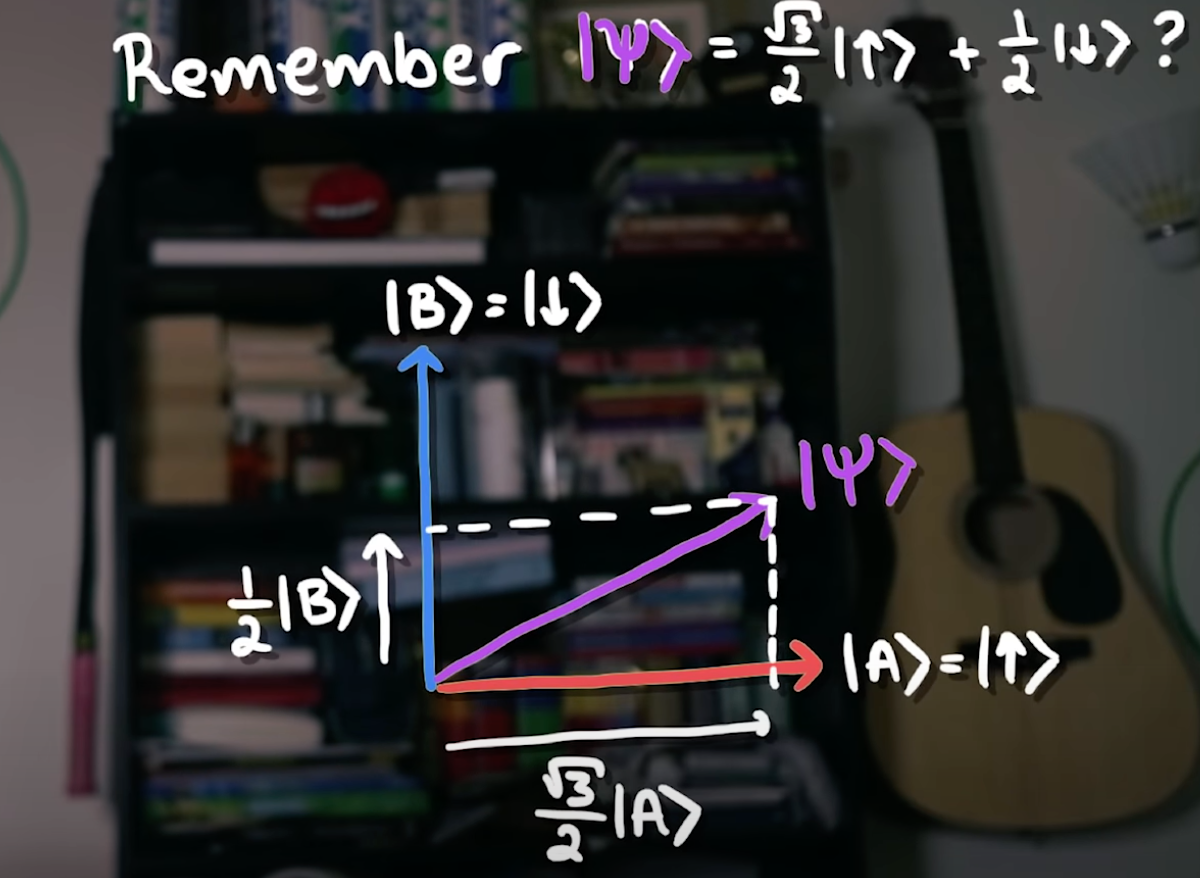 Remember |ψ⟩ = √3/2 |↑⟩ + 1/2 |↓⟩ ?
|B⟩ = |↓⟩
|ψ⟩
1/2 |B⟩
|A⟩ = |↑⟩
√3/2 |A⟩